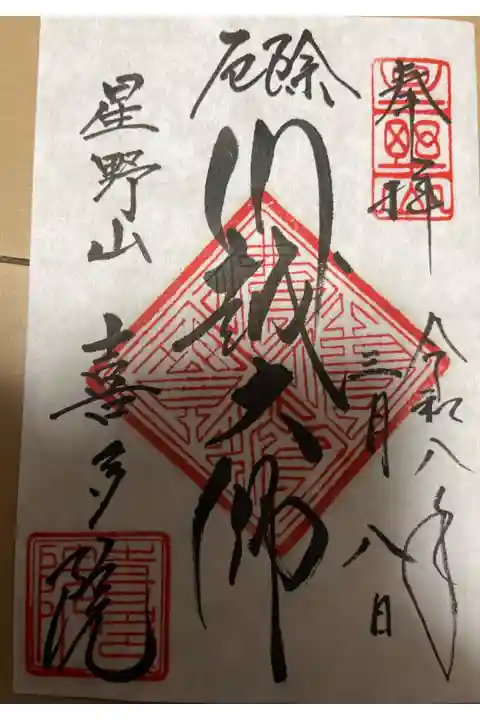 奉拝
令和八年
三月八日
厄除
川越大師
星野山
喜多院